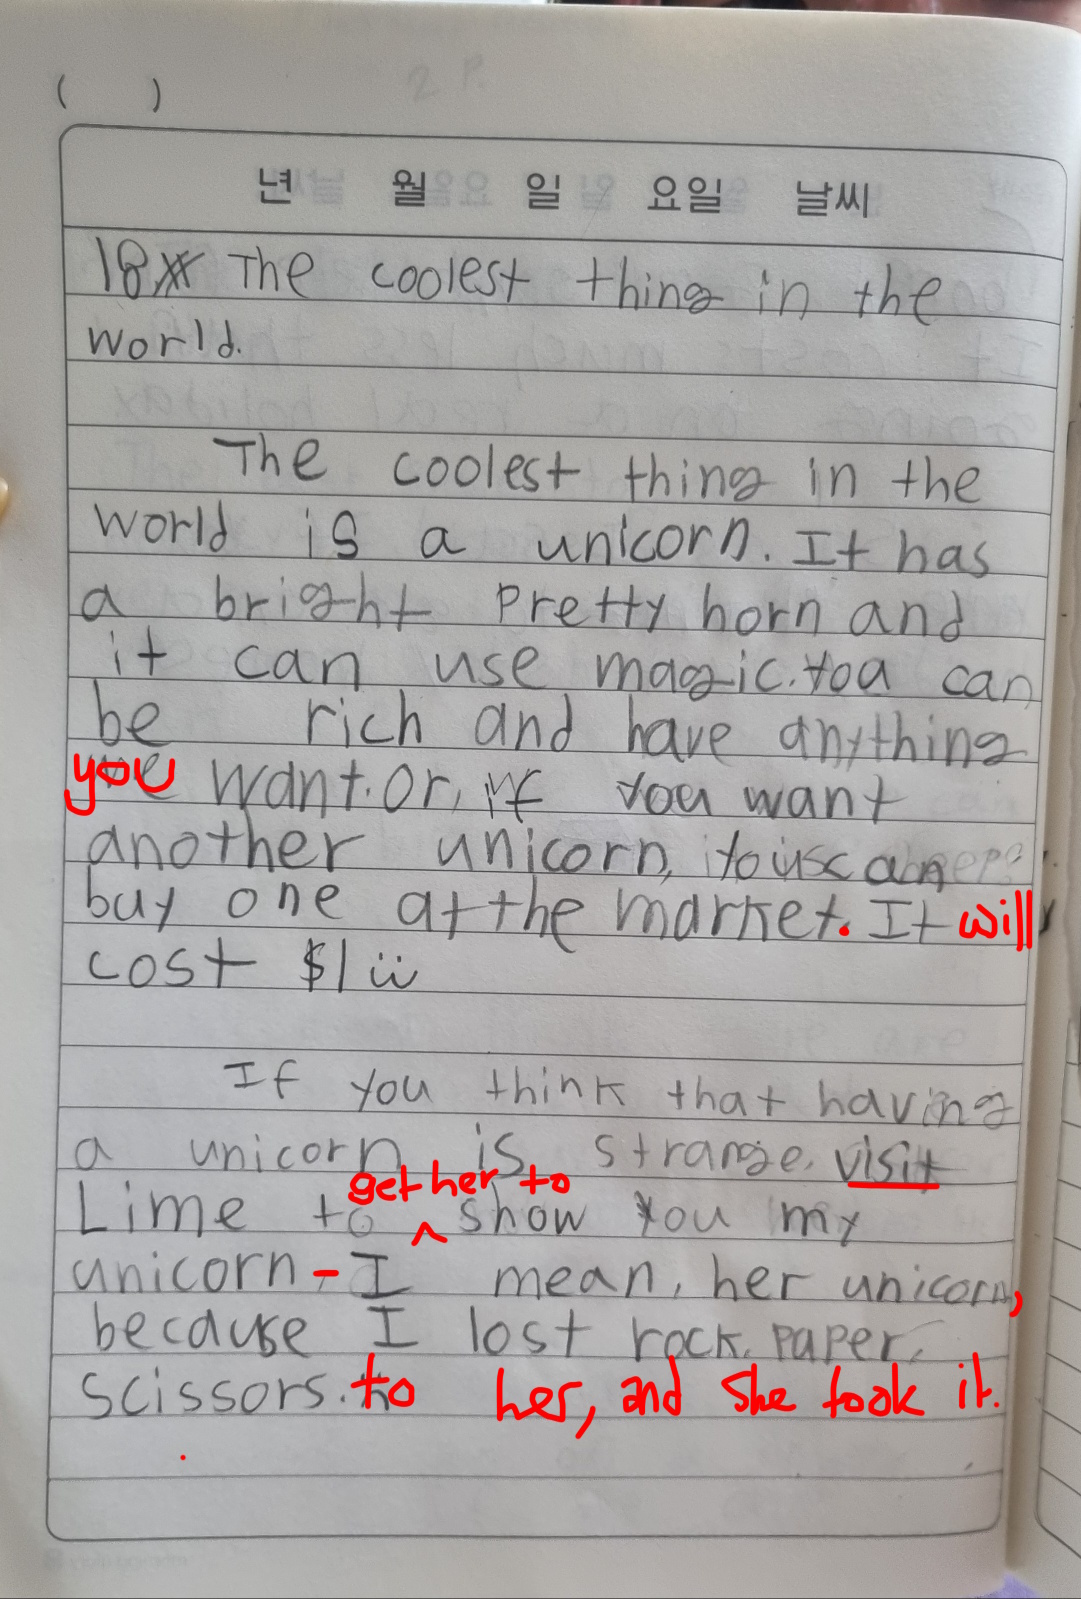 ( ) 2 P.
년 월 일 요일 날씨
18 The coolest thing in the
world.
The coolest thing in the
world is a unicorn. It has
a bright pretty horn and
it can use magic. You can
be rich and have anything
you want. Or, if you want
another unicorn, you can
buy one at the market. It will
cost $1 ü
If you think that having
a unicorn is strange, visit
get her to
Lime to ^ show you my
unicorn - I mean, her unicorn,
because I lost rock, paper,
scissors. to her, and she took it.